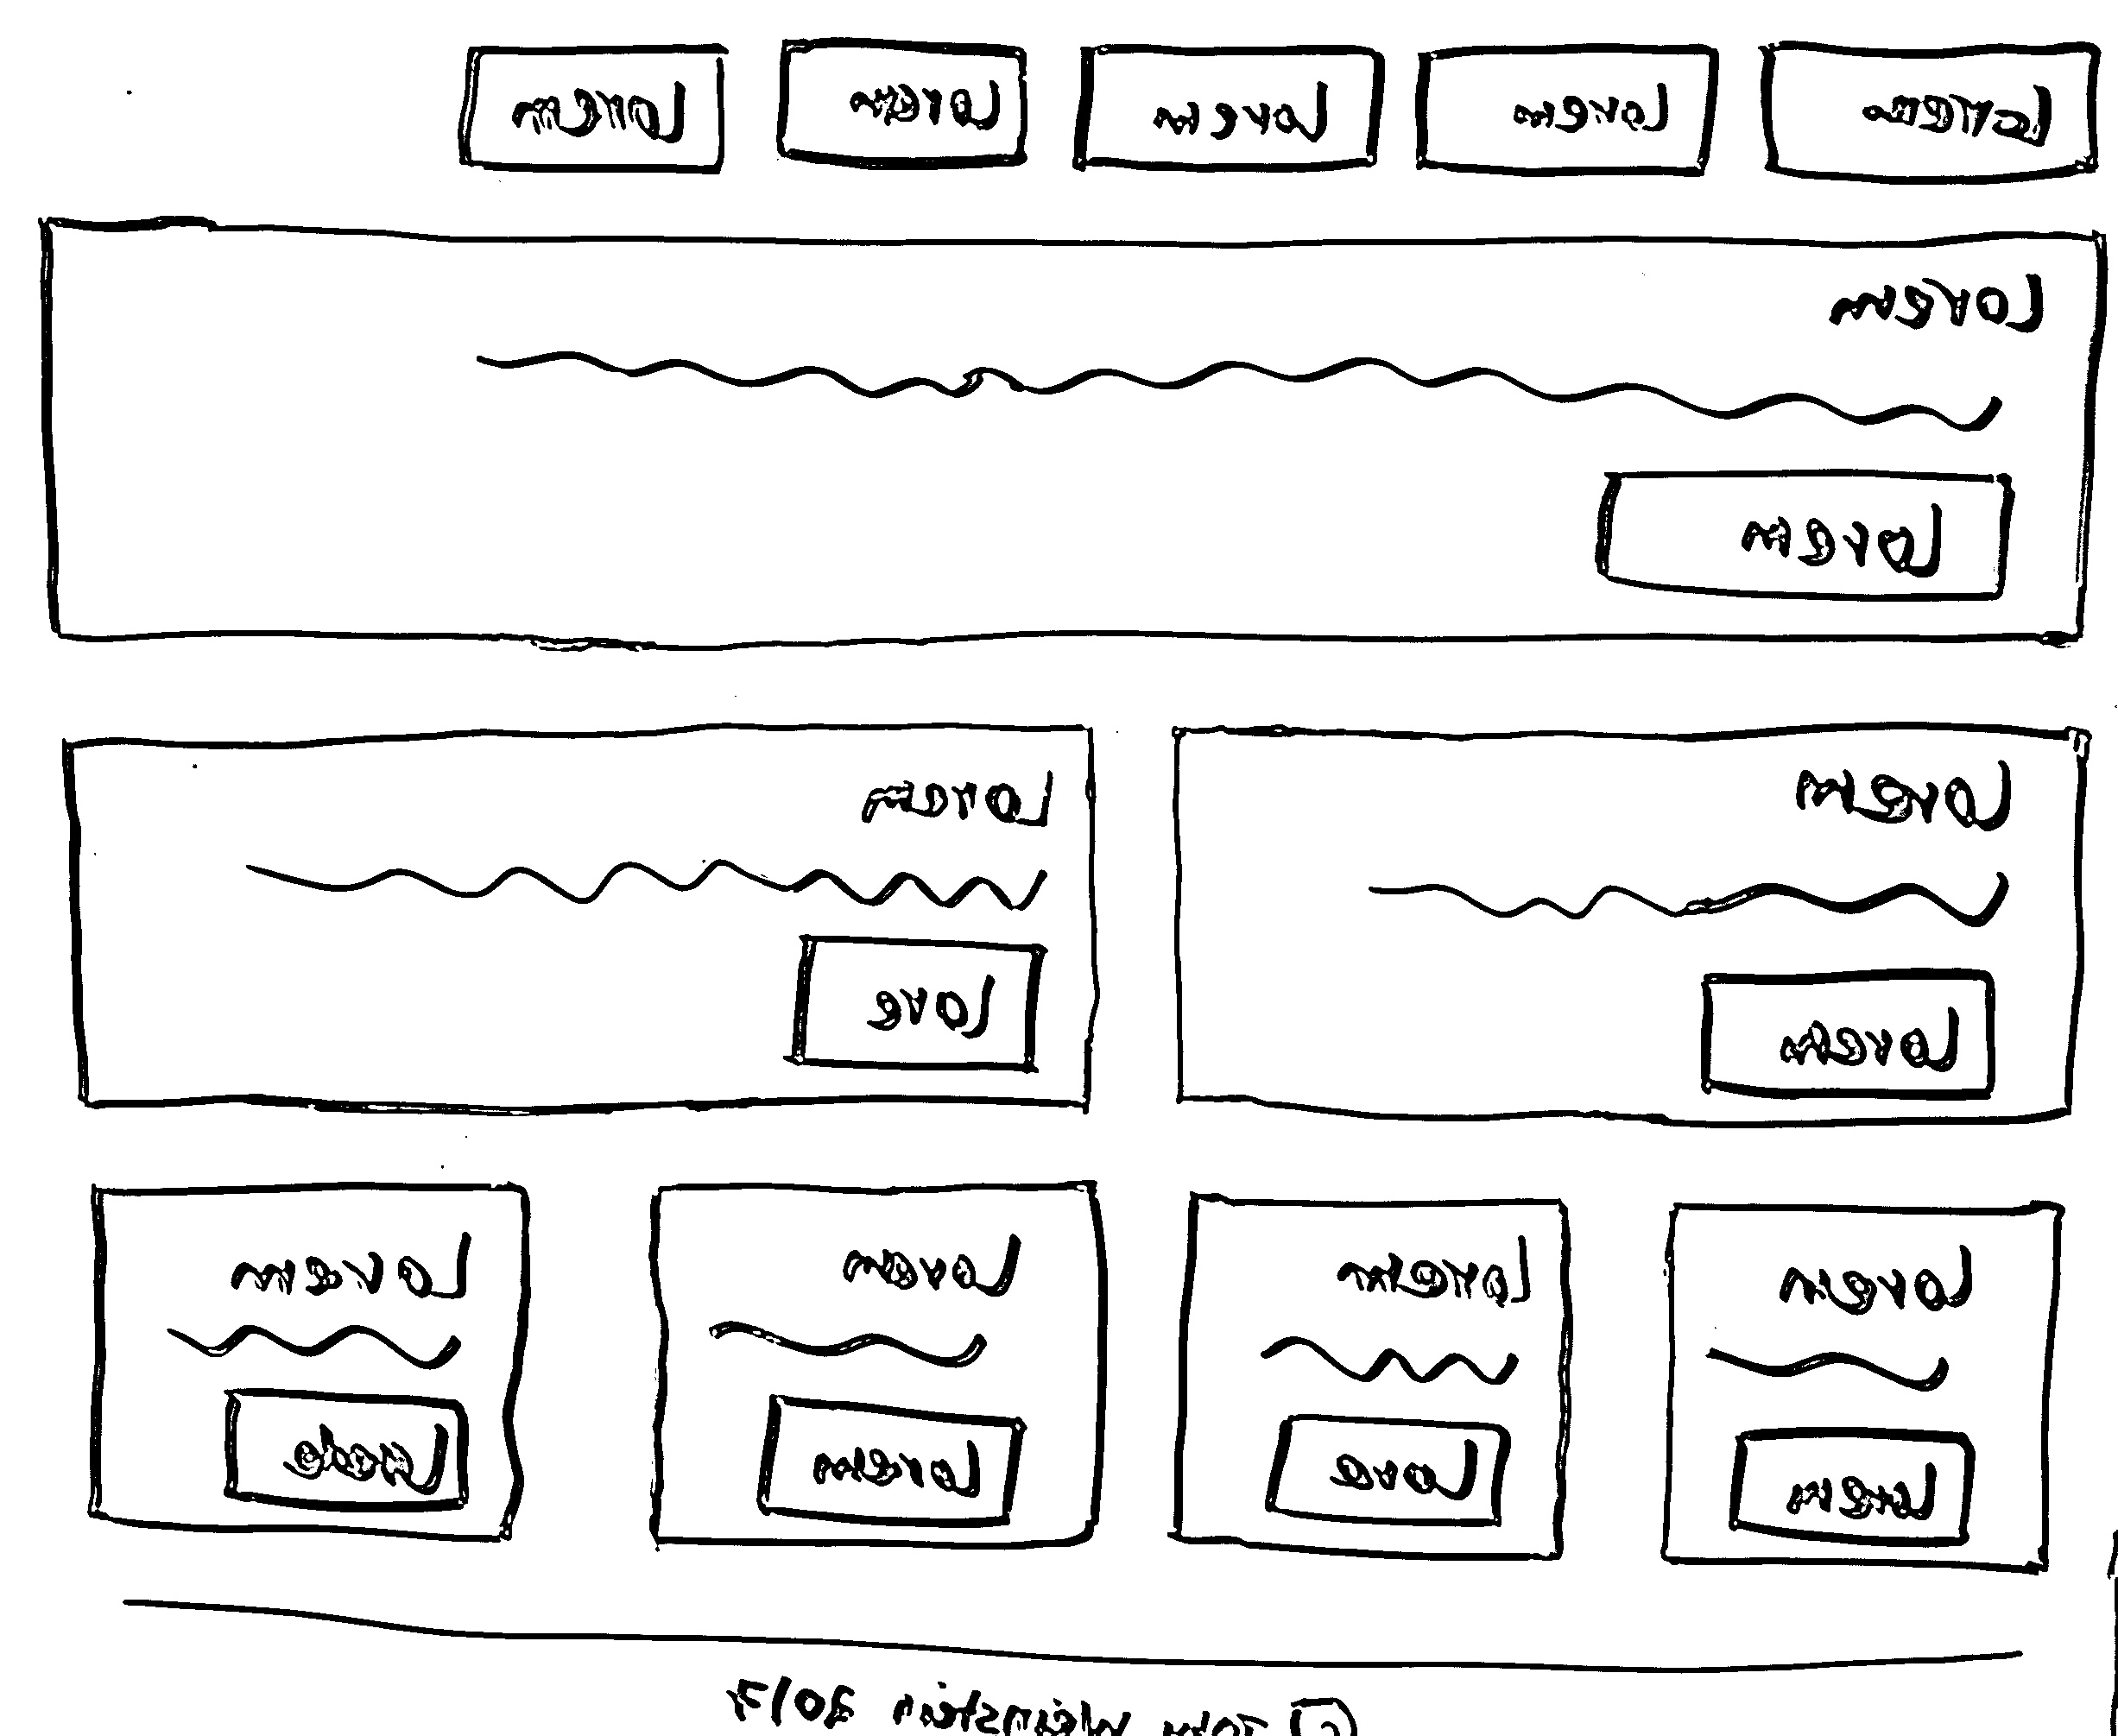 Lorem Lorem Lorem Lorem Lorem
Lorem
Lorem
Lorem Lorem
Lorem Lore
Lorem Lorem Lorem Lorem
Lorem Lore Lorem
© Weinstein 2017